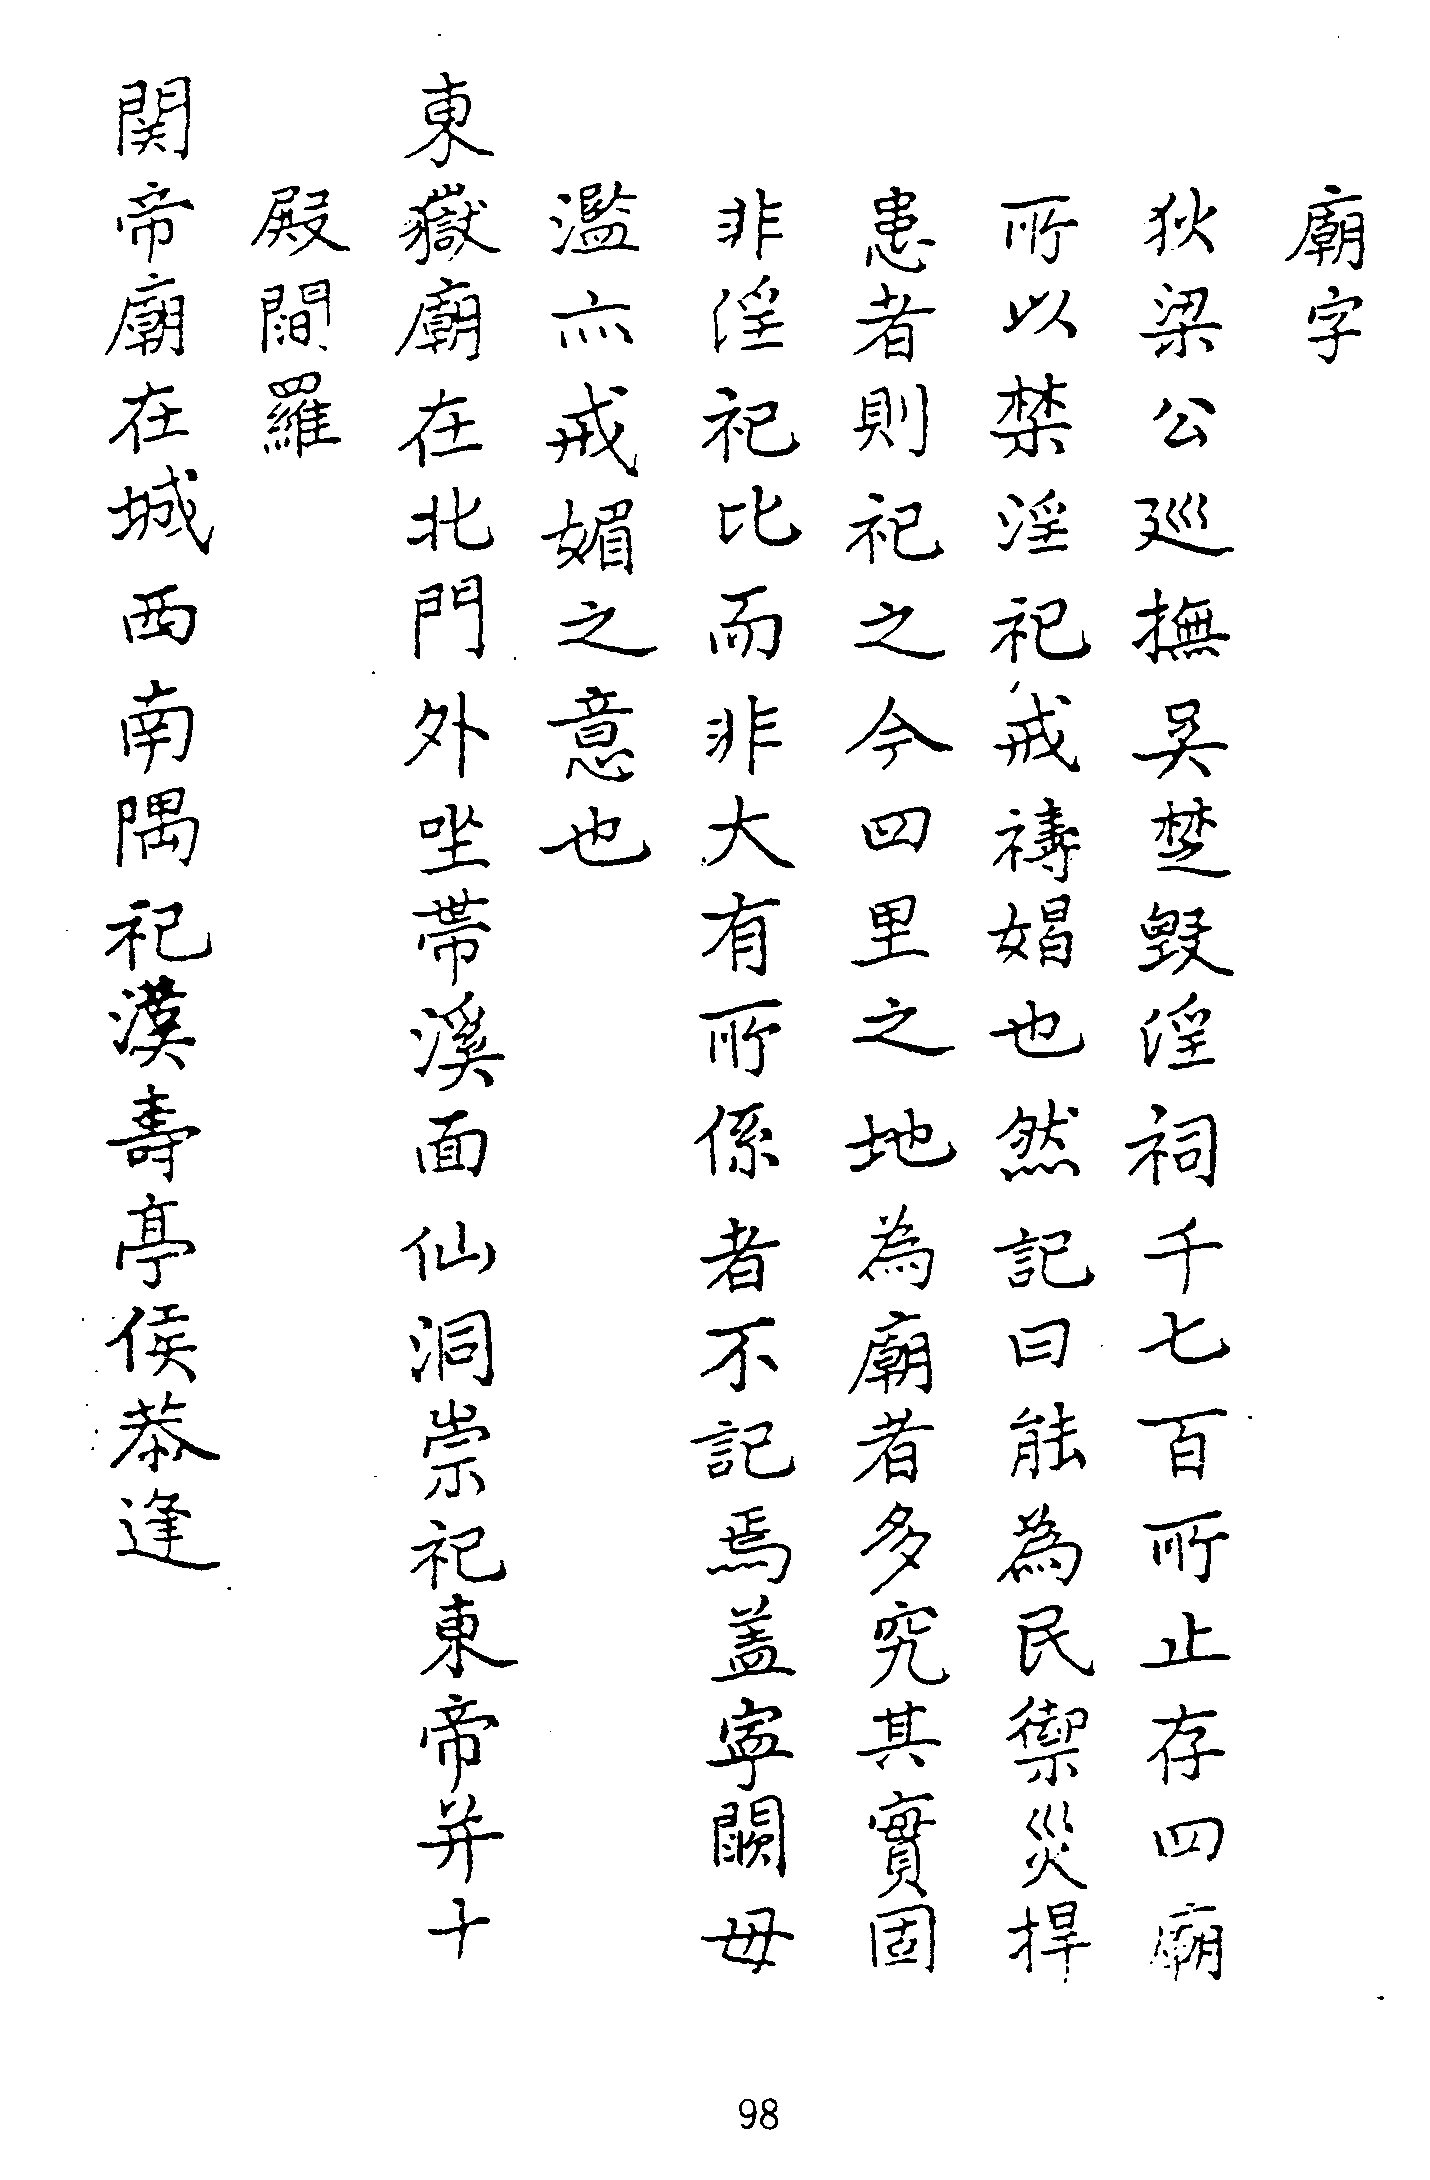 廟字
狄梁公巡撫吳楚毀淫祠千七百所止存四廟
所以禁淫祀戒禱媢也然記曰能為民禦災捍
患者則祀之今四里之地為廟者多究其實固
非淫祀比而非大有所係者不記焉蓋寧闕毋
濫亦戒媚之意也
東嶽廟在北門外坐帶溪面仙洞崇祀東帝并十
殿閻羅
関帝廟在城西南隅祀漢壽亭侯恭逢
98